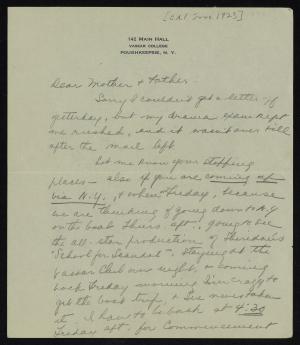 [ca 1 June 1923]
142 MAIN HALL
VASSAR COLLEGE
POUGHKEEPSIE, N. Y.
Dear Mother & Father -
Sorry I couldn't get a letter off
yesterday, but my drama exam kept
me rushed, and it wasn't over till
after the mail left.
Let me know your stopping
places - also if you are coming up
via N.Y., & when Friday, because
we are thinking of going down to N.Y
on the boat Thurs. aft., going to see
the all-star production of Sheridan's
"School for Scandal", staying at the
Vassar Club over night, & coming
back Friday morning. I'm crazy to
get the boat trip, & I've never taken
it. I have to be back at 4:30
Friday aft. for Commencement